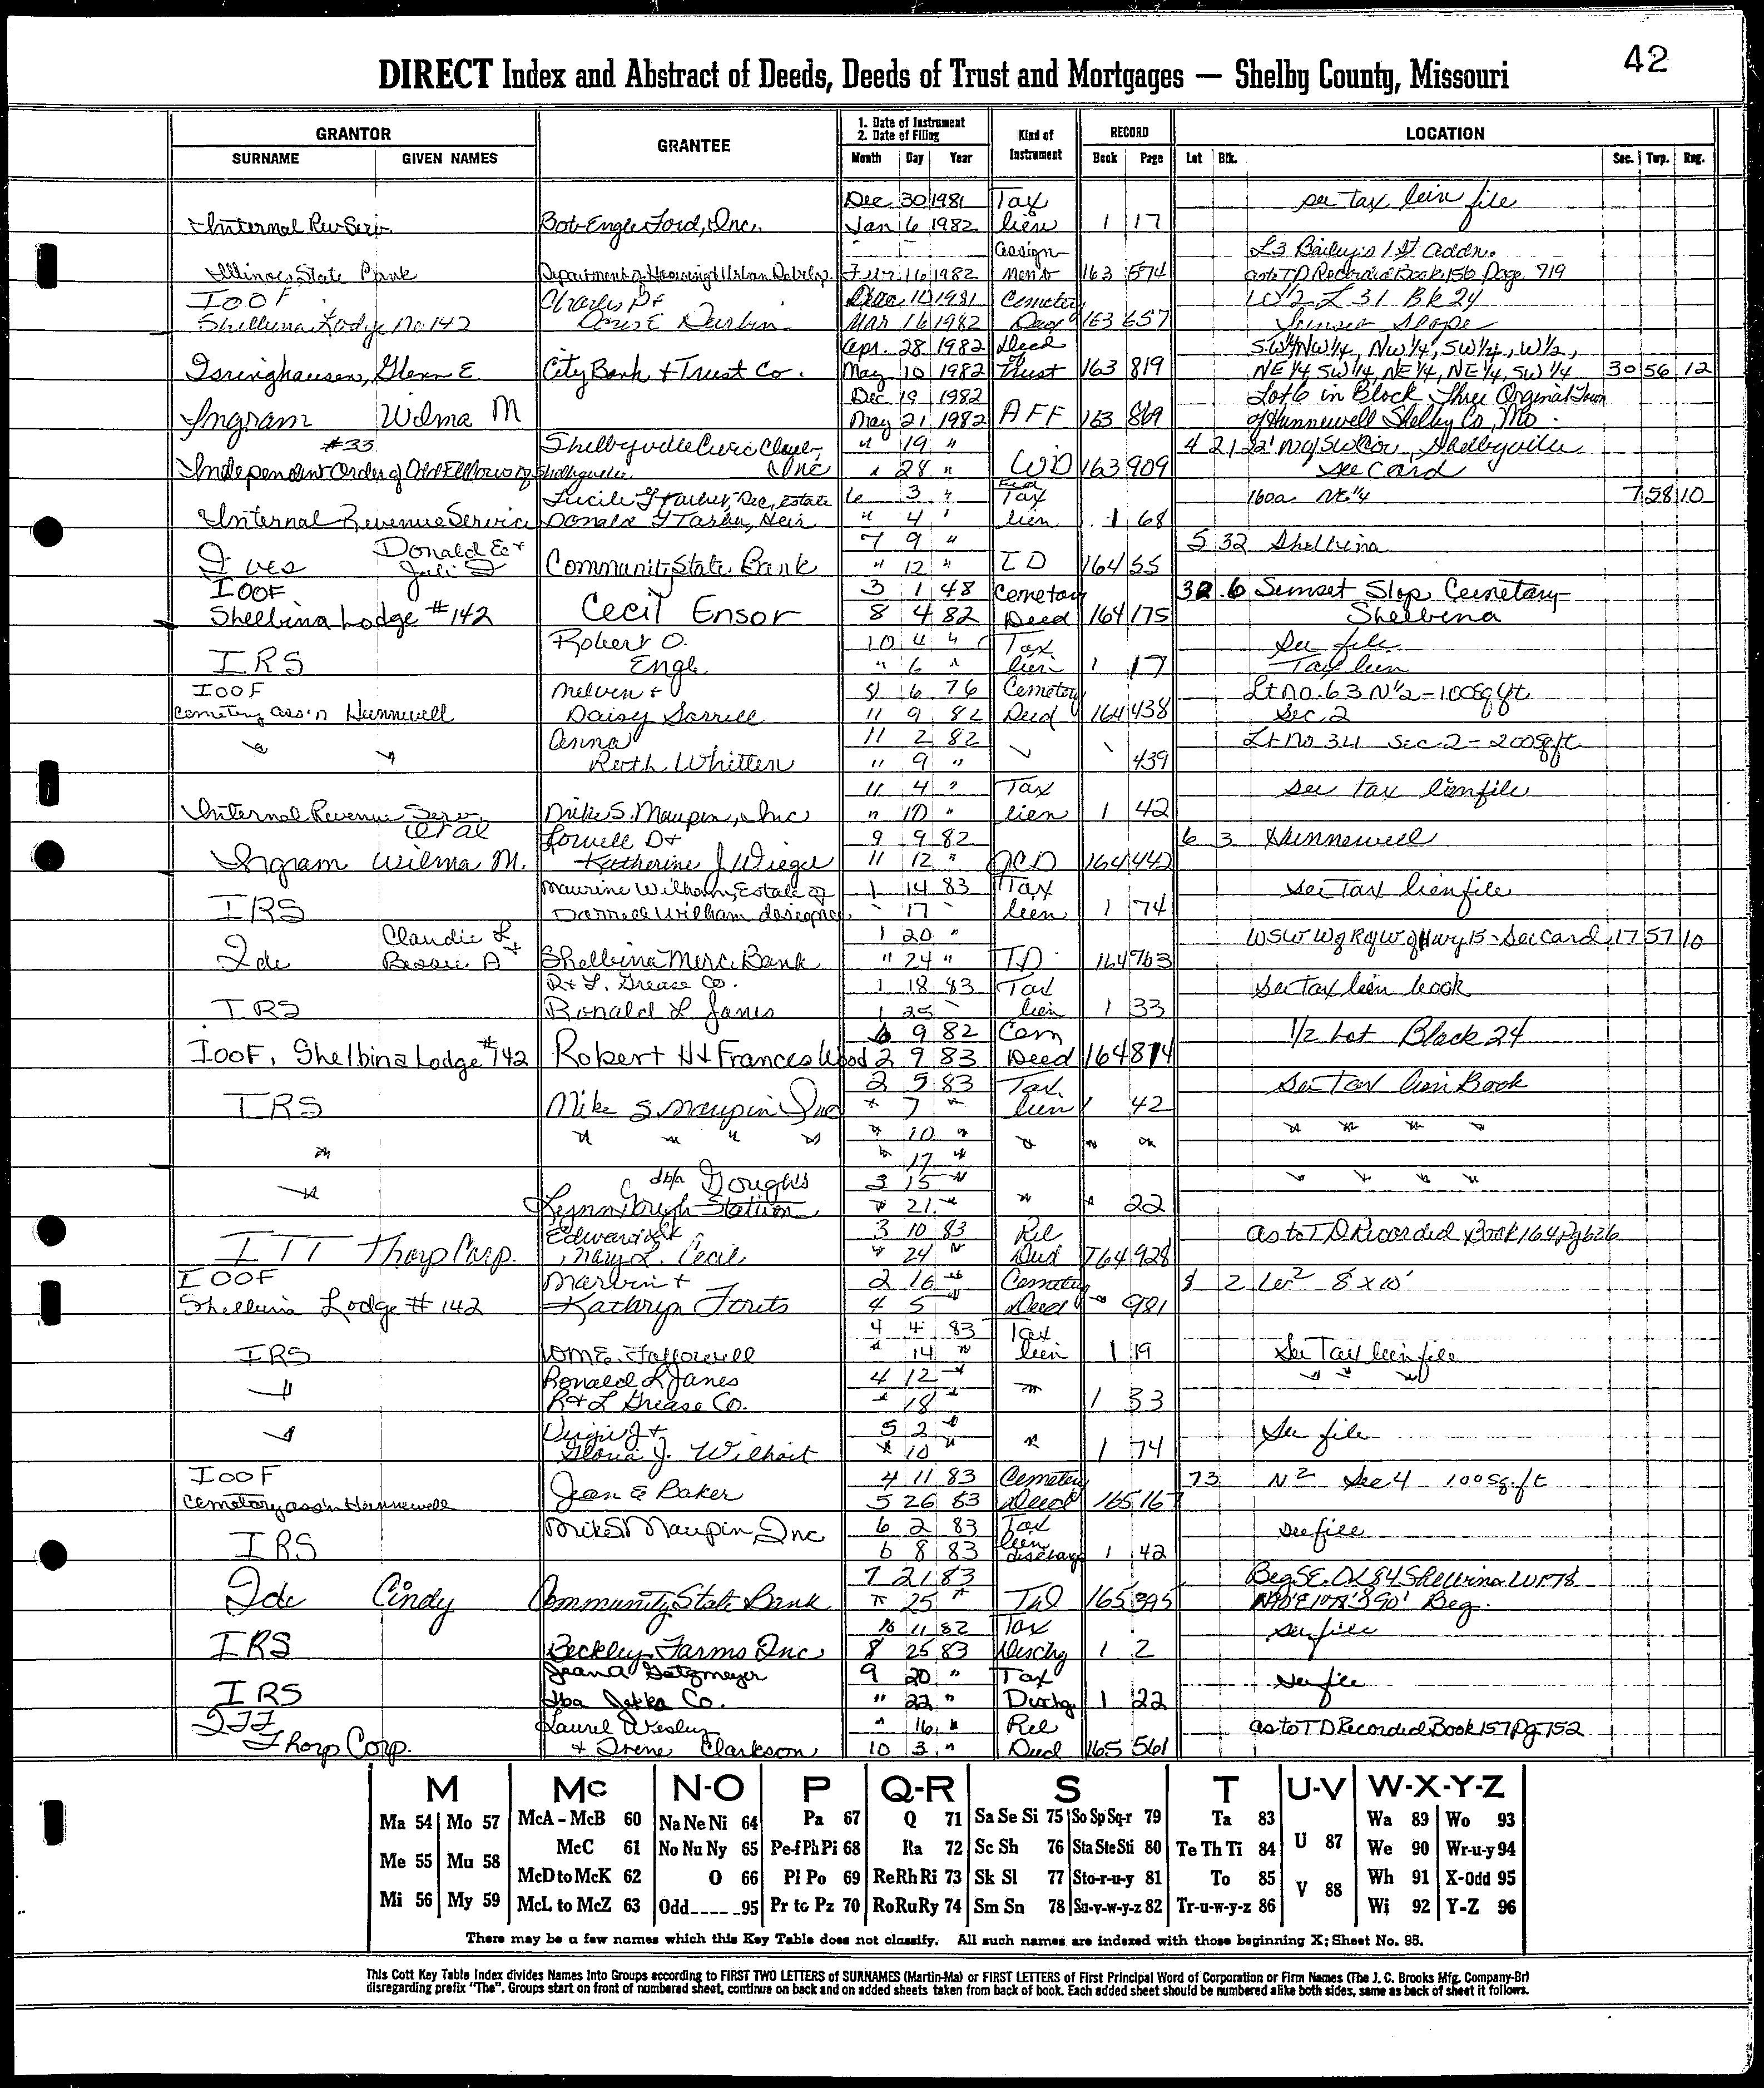 42
DIRECT Index and Abstract of Deeds, Deeds of Trust and Mortgages — Shelby County, Missouri
GRANTOR GRANTEE 1. Date of Instrument 2. Date of Filing Kind of Instrument RECORD LOCATION
SURNAME GIVEN NAMES Month Day Year Book Page Lot Blk. Sec. Twp. Rng.
Dec 30 1981 Tax see tax lein file
Internal Rev Serv Bob Engle Ford, Inc. Jan 6 1982 lien 1 17
assign- L3 Bailey's 1st Addn.
Illinois State Bank Department of Housing & Urban Develop. Febr. 16 1982 ment 163 574 as to TD Recorded Book 156 Page 719
IOOF Charles P & Dec 10 1981 Cemetery W 1/2 L 31 Bk 24
Shelbina Lodge No 142 E Durbin Mar 16 1982 Deed 163 657 Sunset Slope
Apr. 28 1982 Deed of SW 1/4 NW 1/4, NW 1/4, SW 1/4, W 1/2,
Isringhausen, Glenn E City Bank & Trust Co. May 10 1982 Trust 163 819 NE 1/4 SW 1/4, NE 1/4, NE 1/4, SW 1/4 30 56 12
Dec 19 1982 Lot 6 in Block Three Orginal Town
Ingram Wilma M May 21 1982 AFF 163 869 of Hunnewell Shelby Co, Mo.
#33 Shelbyville Civic Club, " 19 " 4 21 22' N of SW Cor, Shelbyville
Independent Order of Odd Fellows of Shelbyville Inc " 28 " WD 163 909 see card
Lucile G Tarbet, Dec, Estate 6 3 " Fed Tax 160a NE 1/4 7 58 10
Internal Revenue Service Donald G Heir " 4 " lien 1 68
Donald E & 7 9 " 5 32 Shelbina
Ives Juli Community State Bank " 12 " TD 164 55
IOOF 3 1 48 Cemetary 32 6 Sunset Slop Cemetary
Shelbina Lodge #142 Cecil Ensor 8 4 82 Deed 164 175 Shelbina
Robert O. 10 4 " Tax See file
IRS Engle " 6 " lien 1 17 Tax lien
IOOF Melvin & 6 76 Cemetery Lt no. 63 N 1/2 - 100 sq ft
Cemetery Ass'n Hunnewell Daisy Sorrell 11 9 82 Deed 164 438 Sec. 2
Anna 11 2 82 Lt no 34 Sec. 2 - 200 sq ft
Ruth Whitten " 9 " 439
11 4 " Tax see tax lien file
Internal Revenue Serv. Mike S. Maupin, Inc " 10 " lien 1 42
et al Lowell D & 9 9 82 6 3 Hunnewell
Ingram Wilma M. Katherine J Wieger 11 12 " QCD 164 442
Maurine Wilham, Estate of 1 14 83 Tax See Tax lien file
IRS Darrell Wilham designee " 17 " lien 1 74
Claudie L & 1 20 " WSW W of R of W of Hwy 15 - See Card 17 57 10
Ide Bessie A Shelbina Merc. Bank " 24 " TD 164 763
R & L Grease Co. 1 18 83 Tax See tax lien book
IRS Ronald L Janes 1 25 " lien 1 33
6 9 82 Cem 1/2 Lot Block 24
IOOF, Shelbina Lodge #142 Robert H & Frances Wood 2 9 83 Deed 164 814
2 5 83 Tax See Tax lien Book
IRS Mike S Maupin Inc " 7 " lien 1 42
" " " " " 10 " " " " " " " "
" " 17 "
dba Doughs 3 15 " " " " "
" Lynn Station " 21 " " " 22
Edward K 3 10 83 Rel as to TD Recorded Book 164 Pg 626
ITT Thorp Corp. Mary L. Cecil " 24 " Deed 164 928
IOOF Marvin & 2 16 " Cemetery 8 2 W 2 8 x 10'
Shelbina Lodge #142 Kathryn 4 5 " Deed " 981
4 4 83 Tax
IRS Wm E. Followell " 14 " lien 1 19 See Tax lien file
" Ronald L Janes 4 12 " " " "
R & L Grease Co. " 18 " " 1 33
" & 5 2 " See file
Gloria J. Wilhoit " 10 " " 1 74
IOOF 4 11 83 Cemetery 73 N 2 Sec 4 100 sq. ft
Cemetary assn Hunnewell Jean E Baker 5 26 83 Deed 165 167
Mike S Maupin, Inc 6 2 83 Tax see file
IRS 6 8 83 lien discharge 1 42
7 21 83 Beg SE. OL 84 Shelbina W 178
Ide Cindy Community State Bank " 25 " TD 165 395 N90' E 178' S 90' Beg.
10 4 82 Tax see file
IRS Beckley Farms Inc 8 25 83 Dischg 1 2
Jean A Gatzmeyer 9 20 " Tax see file
IRS dba Jekka Co. " 22 " Dischg 1 22
ITT Laurel Wesley " 16 " Rel as to TD Recorded Book 157 Pg 752
Thorp Corp. & Irene Clarkson 10 3 " Deed 165 561
M Mc N-O P Q-R S T U-V W-X-Y-Z
Ma 54 Mo 57 McA - McB 60 Na Ne Ni 64 Pa 67 Q 71 Sa Se Si 75 So Sp Sq-r 79 Ta 83 Wa 89 Wo 93
McC 61 No Nu Ny 65 Pe-f Ph Pi 68 Ra 72 Sc Sh 76 Sta Ste Sti 80 Te Th Ti 84 U 87 We 90 Wr-u-y 94
Me 55 Mu 58 McD to McK 62 O 66 Pl Po 69 Re Rh Ri 73 Sk Sl 77 Sto-r-u-y 81 To 85 V 88 Wh 91 X-Odd 95
Mi 56 My 59 McL to McZ 63 Odd 95 Pr to Pz 70 Ro Ru Ry 74 Sm Sn 78 Su-v-w-y-z 82 Tr-u-w-y-z 86 Wi 92 Y-Z 96
There may be a few names which this Key Table does not classify. All such names are indexed with those beginning X; Sheet No. 95.
This Cott Key Table Index divides Names into Groups according to FIRST TWO LETTERS of SURNAMES (Martin-Ma) or FIRST LETTERS of First Principal Word of Corporation or Firm Names (The J. C. Brooks Mfg. Company-Br)
disregarding prefix "The". Groups start on front of numbered sheet, continue on back and on added sheets taken from back of book. Each added sheet should be numbered alike both sides, same as back of sheet it follows.